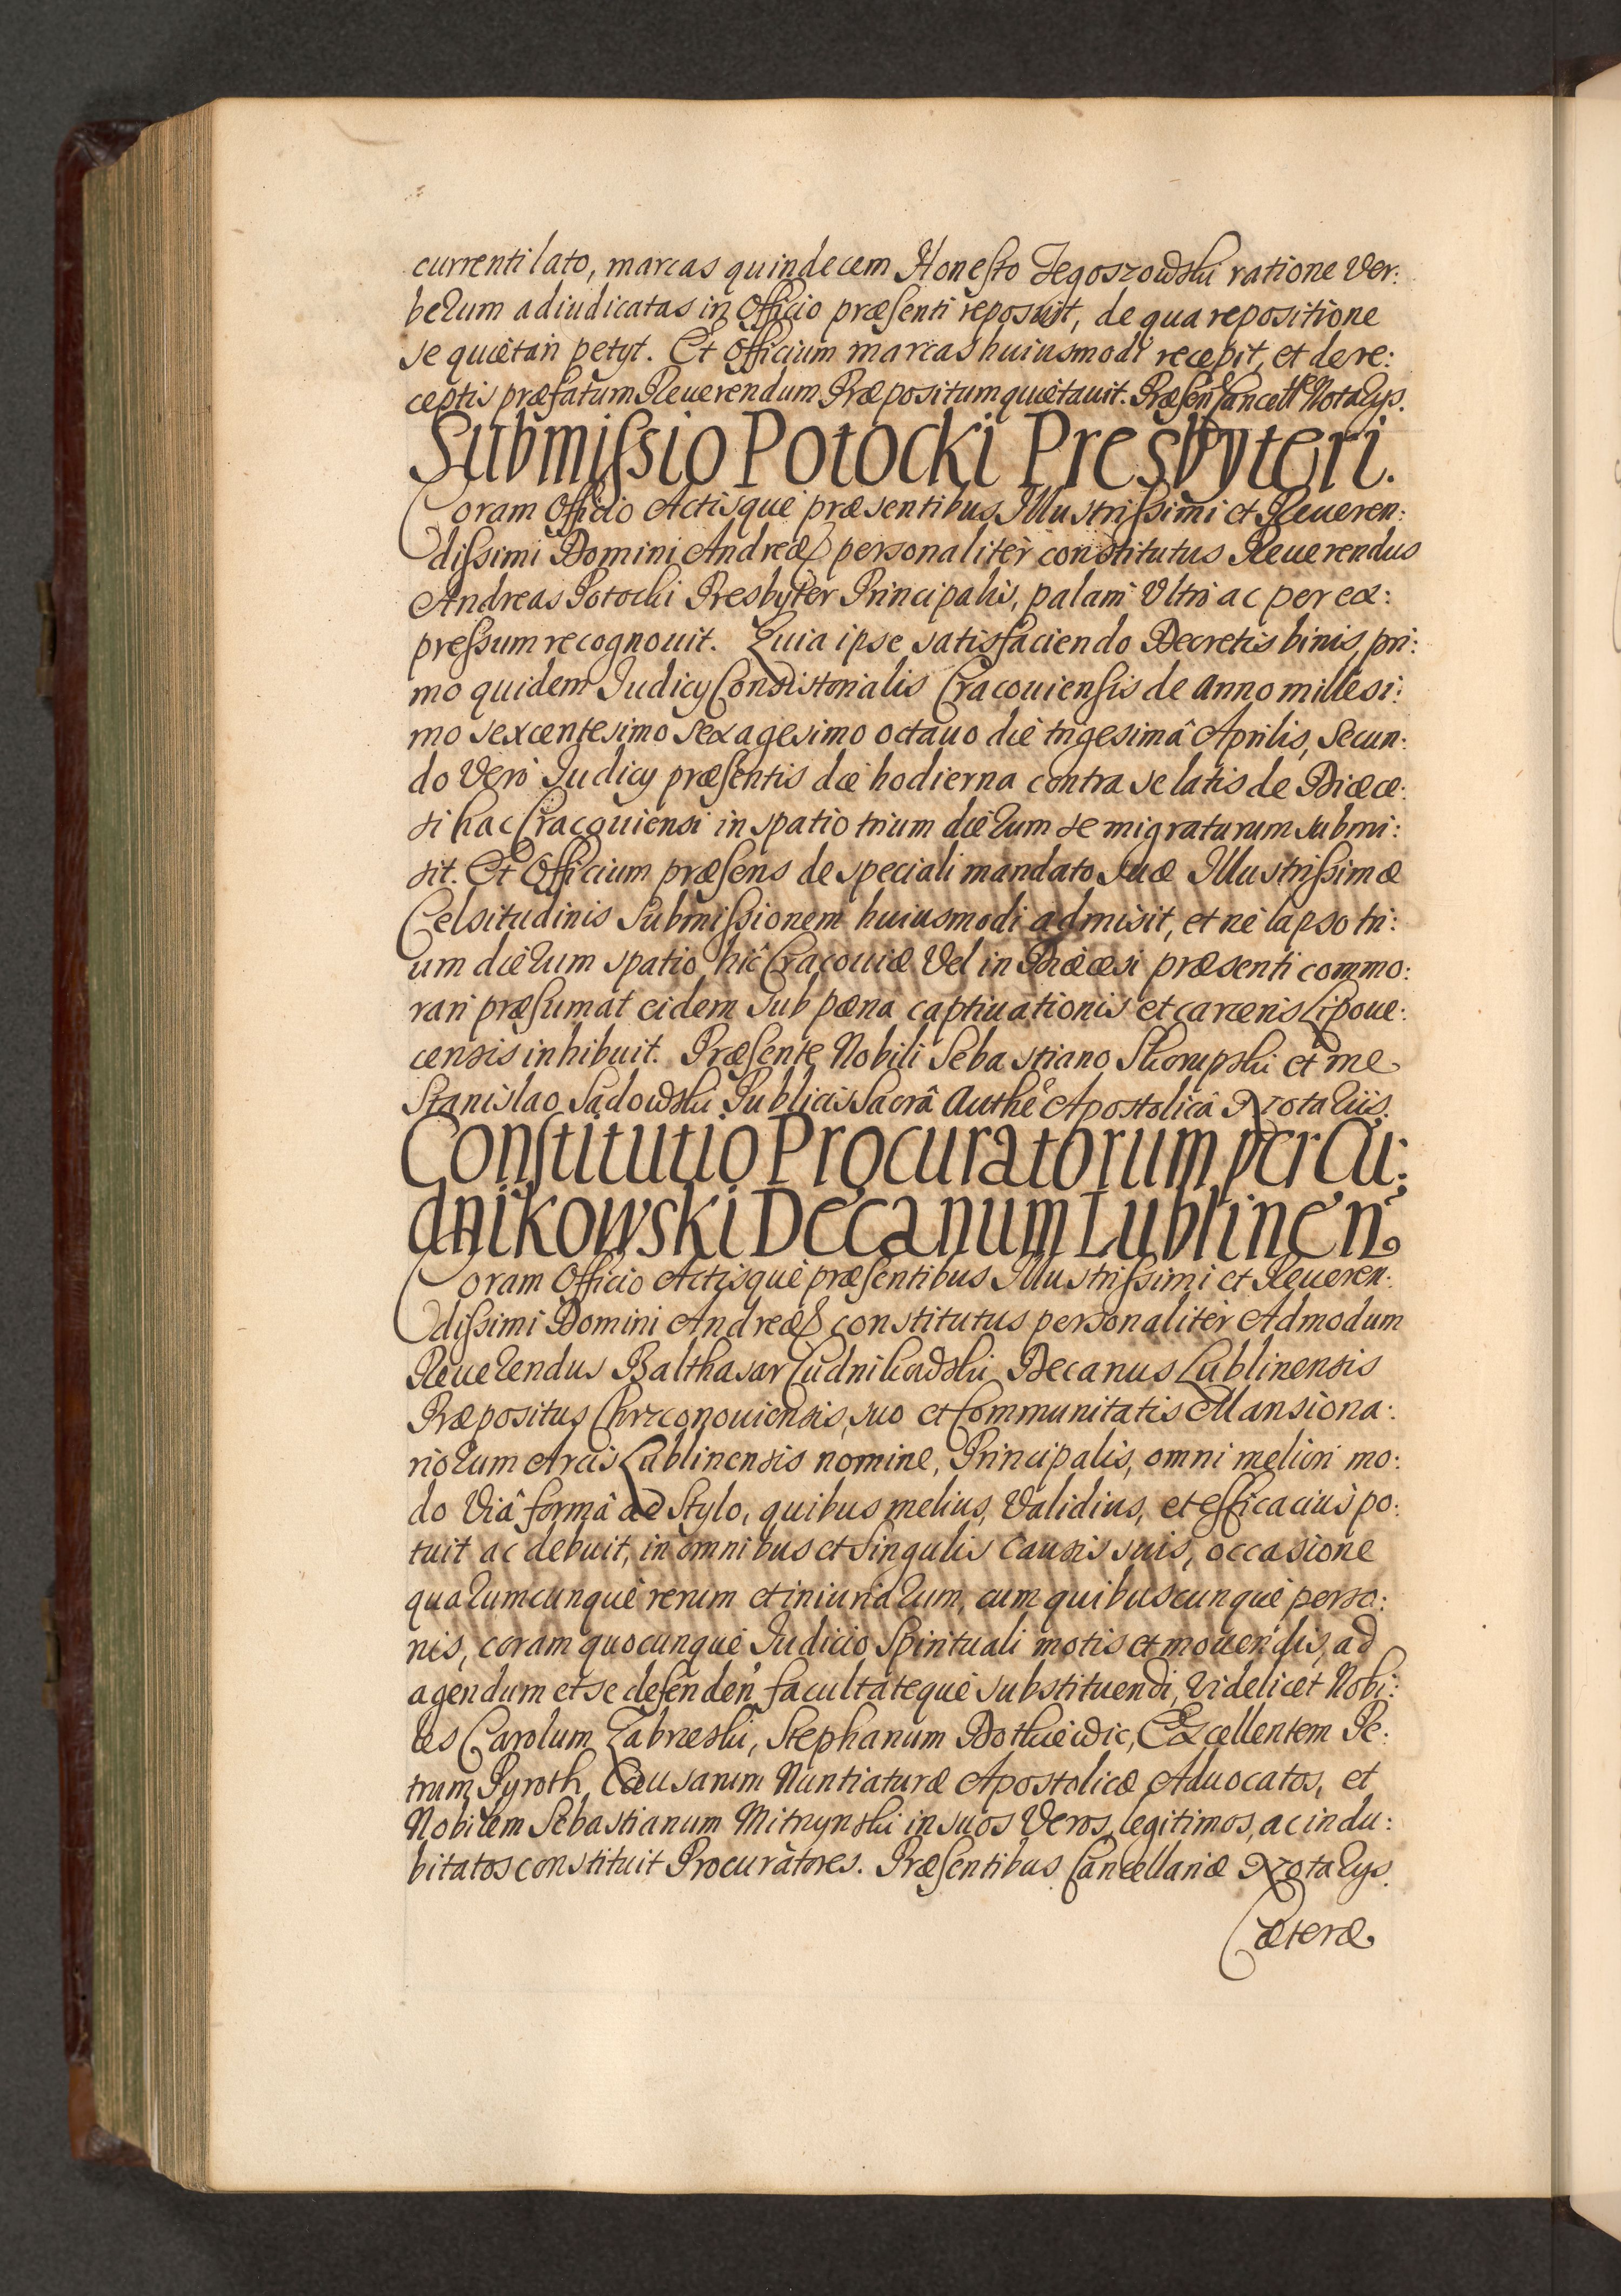 currenti lato, marcas quindecem Honesto Jegoszowski ratione Ver:
berum adiudicatas in Officio præsenti reposuit, de qua repositione
se quietari petyt. Et Officium marcas huiusmodi recepit, et de re:
ceptis præfatum Reuerendum Præpositum quietauit. Præsen Cancellæ Notarys.
Submissio Potocki Presbyteri.
Coram Officio Actisque præsentibus Illustrissimi et Reueren:
dissimi Domini Andreæ personaliter constitutus Reuerendus
Andreas Potocki Presbyter Principalis, palam Vltro ac per ex:
pressum recognouit. Quia ipse satisfaciendo Decretis binis, pri:
mo quidem Judicy Consistorialis Cracouiensis de Anno millesi:
mo sexcentesimo sexagesimo octauo die trigesimâ Aprilis, Secun:
do Vero Judicy præsentis die hodierna contra se latis de Diæce:
si hac Cracouiensi in spatio trium dierum se migraturum submi:
sit. Et Officium præsens de speciali mandato Suæ Illustrissimæ
Celsitudinis Submissionem huiusmodi admisit, et ne lapso tri:
um dierum spatio hic Cracouiæ Vel in Diæcesi præsenti commo:
rari præsumat eidem sub pæna captiuationis et carceris Lipoue:
censis inhibuit. Præsente Nobili Sebastiano Skorupski et me
Stanislao Sadowski Publicis Sacrâ Authe Apostolicâ Notariis.
Constitutio Procuratorum per Cu:
dnikowski Decanum Lublinen
Coram Officio Actisque præsentibus Illustrissimi et Reueren:
dissimi Domini Andreæ constitutus personaliter Admodum
Reuerendus Balthasar Cudnikowski Decanus Lublinensis
Præpositus Chrzconouiensis, suo et Communitatis Mansiona:
riorum Arcis Lublinensis nomine, Principalis, omni meliori mo:
do Viâ formâ ac Stylo, quibus melius, Validius, et efficacius po:
tuit ac debuit, in omnibus et Singulis Causis suis, occasione
quarumcunque rerum et iniuriarum, cum quibuscunque perso:
nis, coram quocunque Judicio Spirituali motis et mouendis, ad
agendum et se defenden facultateque substituendi, Videlicet Nobi:
les Carolum Zabrzeski, Stephanum Dothiewic, Excellentem Pe:
trum Pyroth, Causarum Nuntiaturæ Apostolicæ Aduocatos, et
Nobilem Sebastianum Mitrynski in suos Veros, legitimos, ac indu:
bitatos constituit Procuratores. Præsentibus Cancellariæ Notarys.
Cæteræ